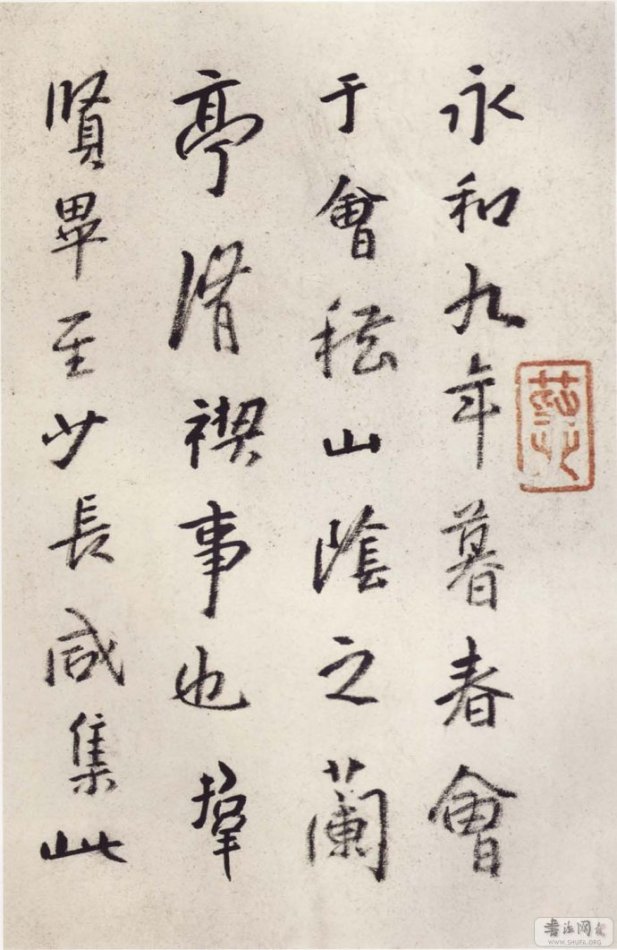 永和九年暮春會
于會稽山陰之蘭
亭脩禊事也羣
賢畢至少長咸集此
书法网
WWW.SHUFA.ORG